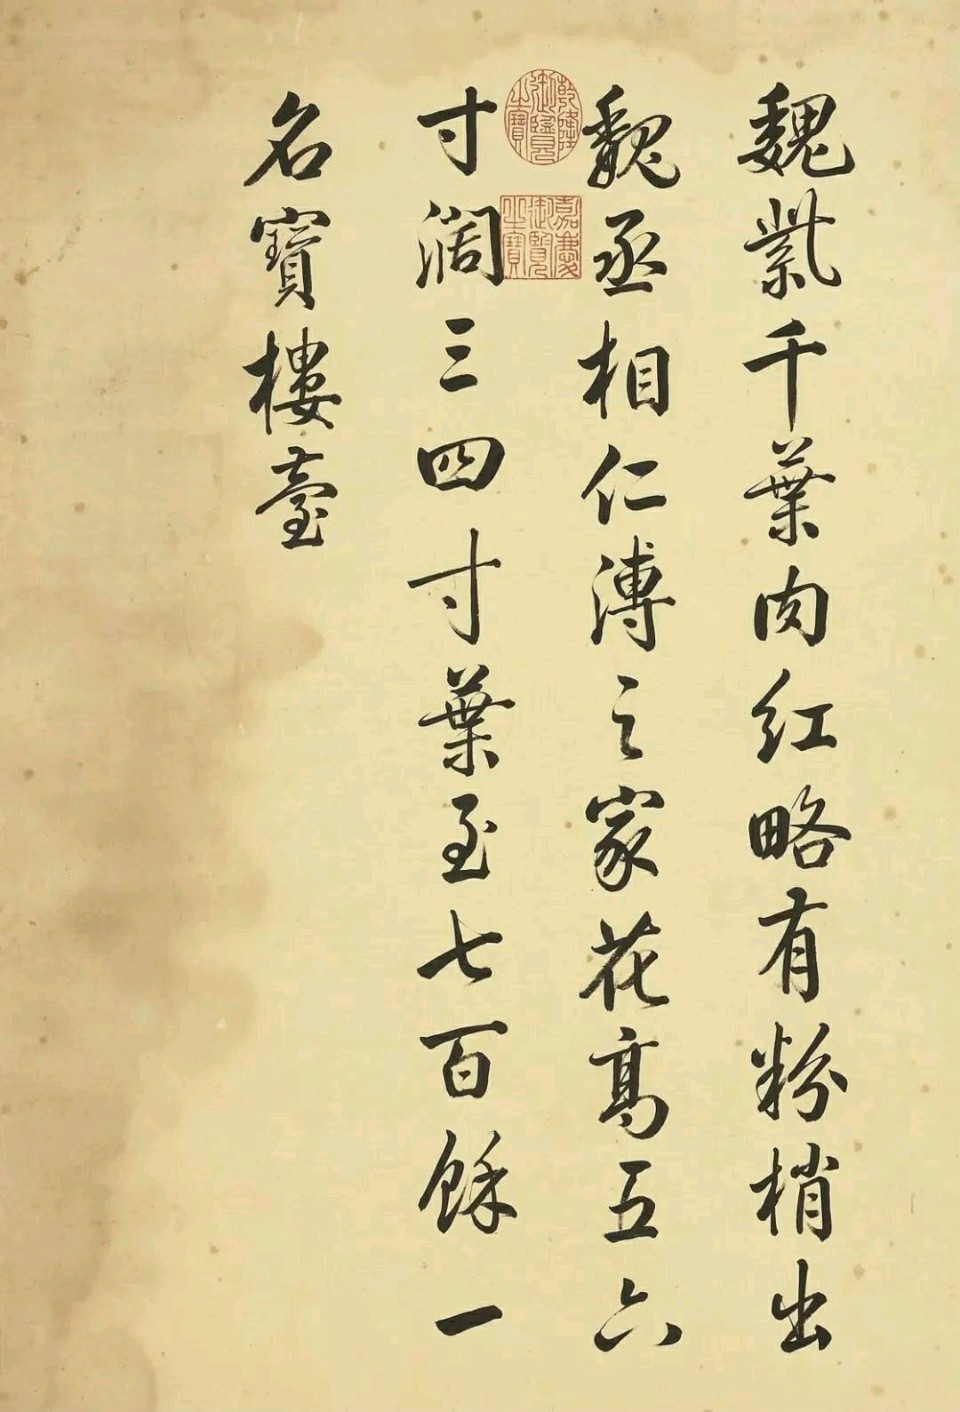 魏紫千葉肉紅略有粉梢出
魏丞相仁溥之家花高五六
寸濶三四寸葉至七百餘一
名寶樓臺
乾隆御覽之寶
嘉慶御覽之寶